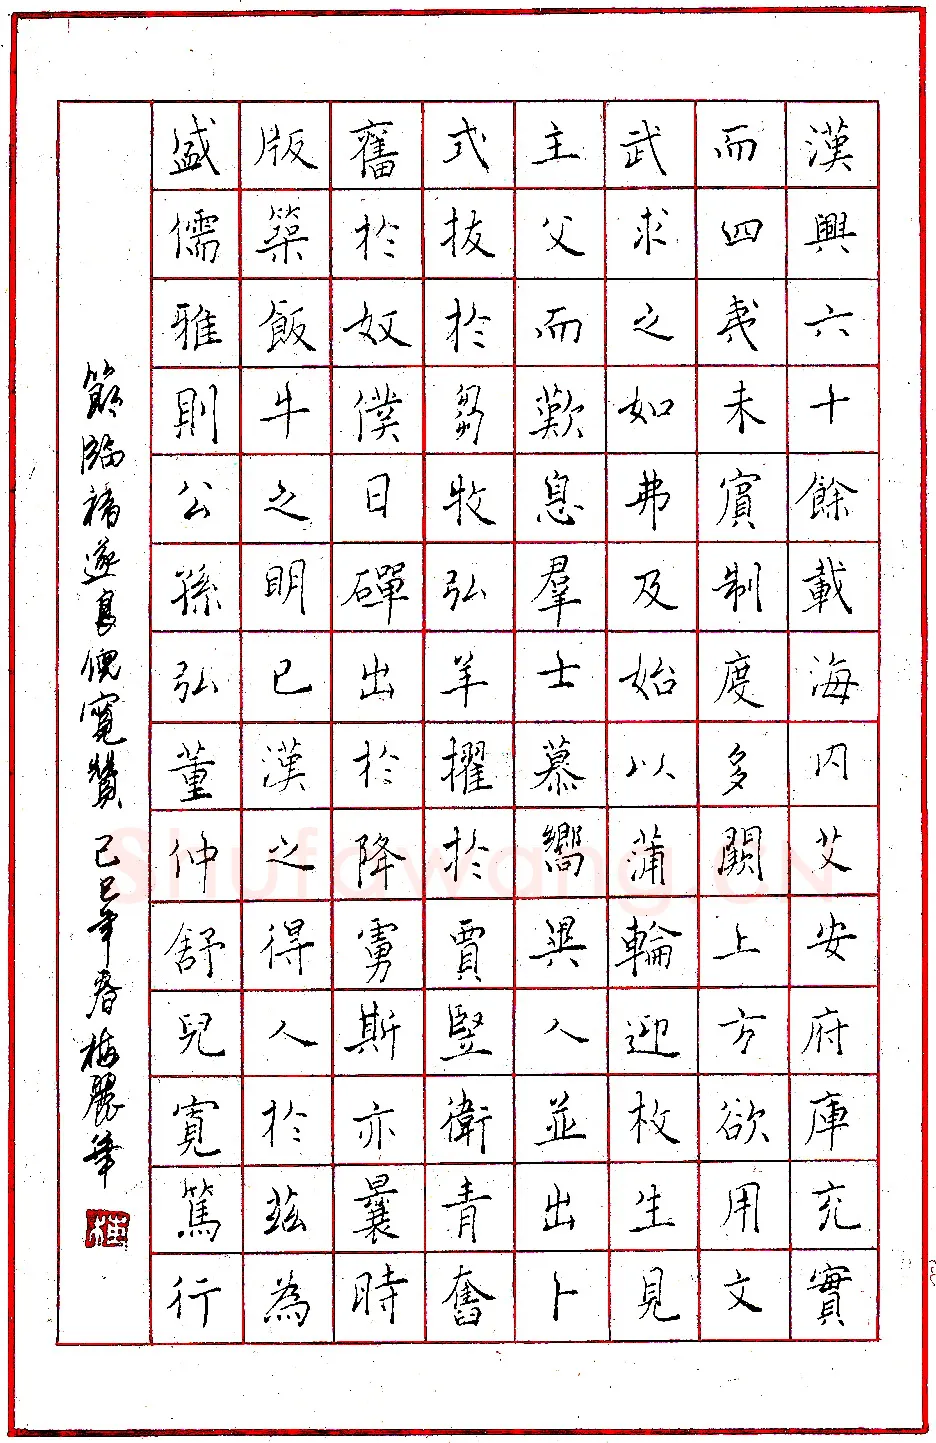 漢興六十餘載海内艾安府庫充實
而四夷未賓制度多闕上方欲用文
武求之如弗及始以蒲輪迎枚生見
主父而歎息羣士慕嚮異人並出卜
式拔於芻牧弘羊擢於賈豎衛青奮
舊於奴僕日磾出於降虜斯亦曩時
版築飯牛之明已漢之得人於茲為
盛儒雅則公孫弘董仲舒兒寬篤行
節臨褚遂良倪寬贊 己巳年春梅
Shufawang.CN